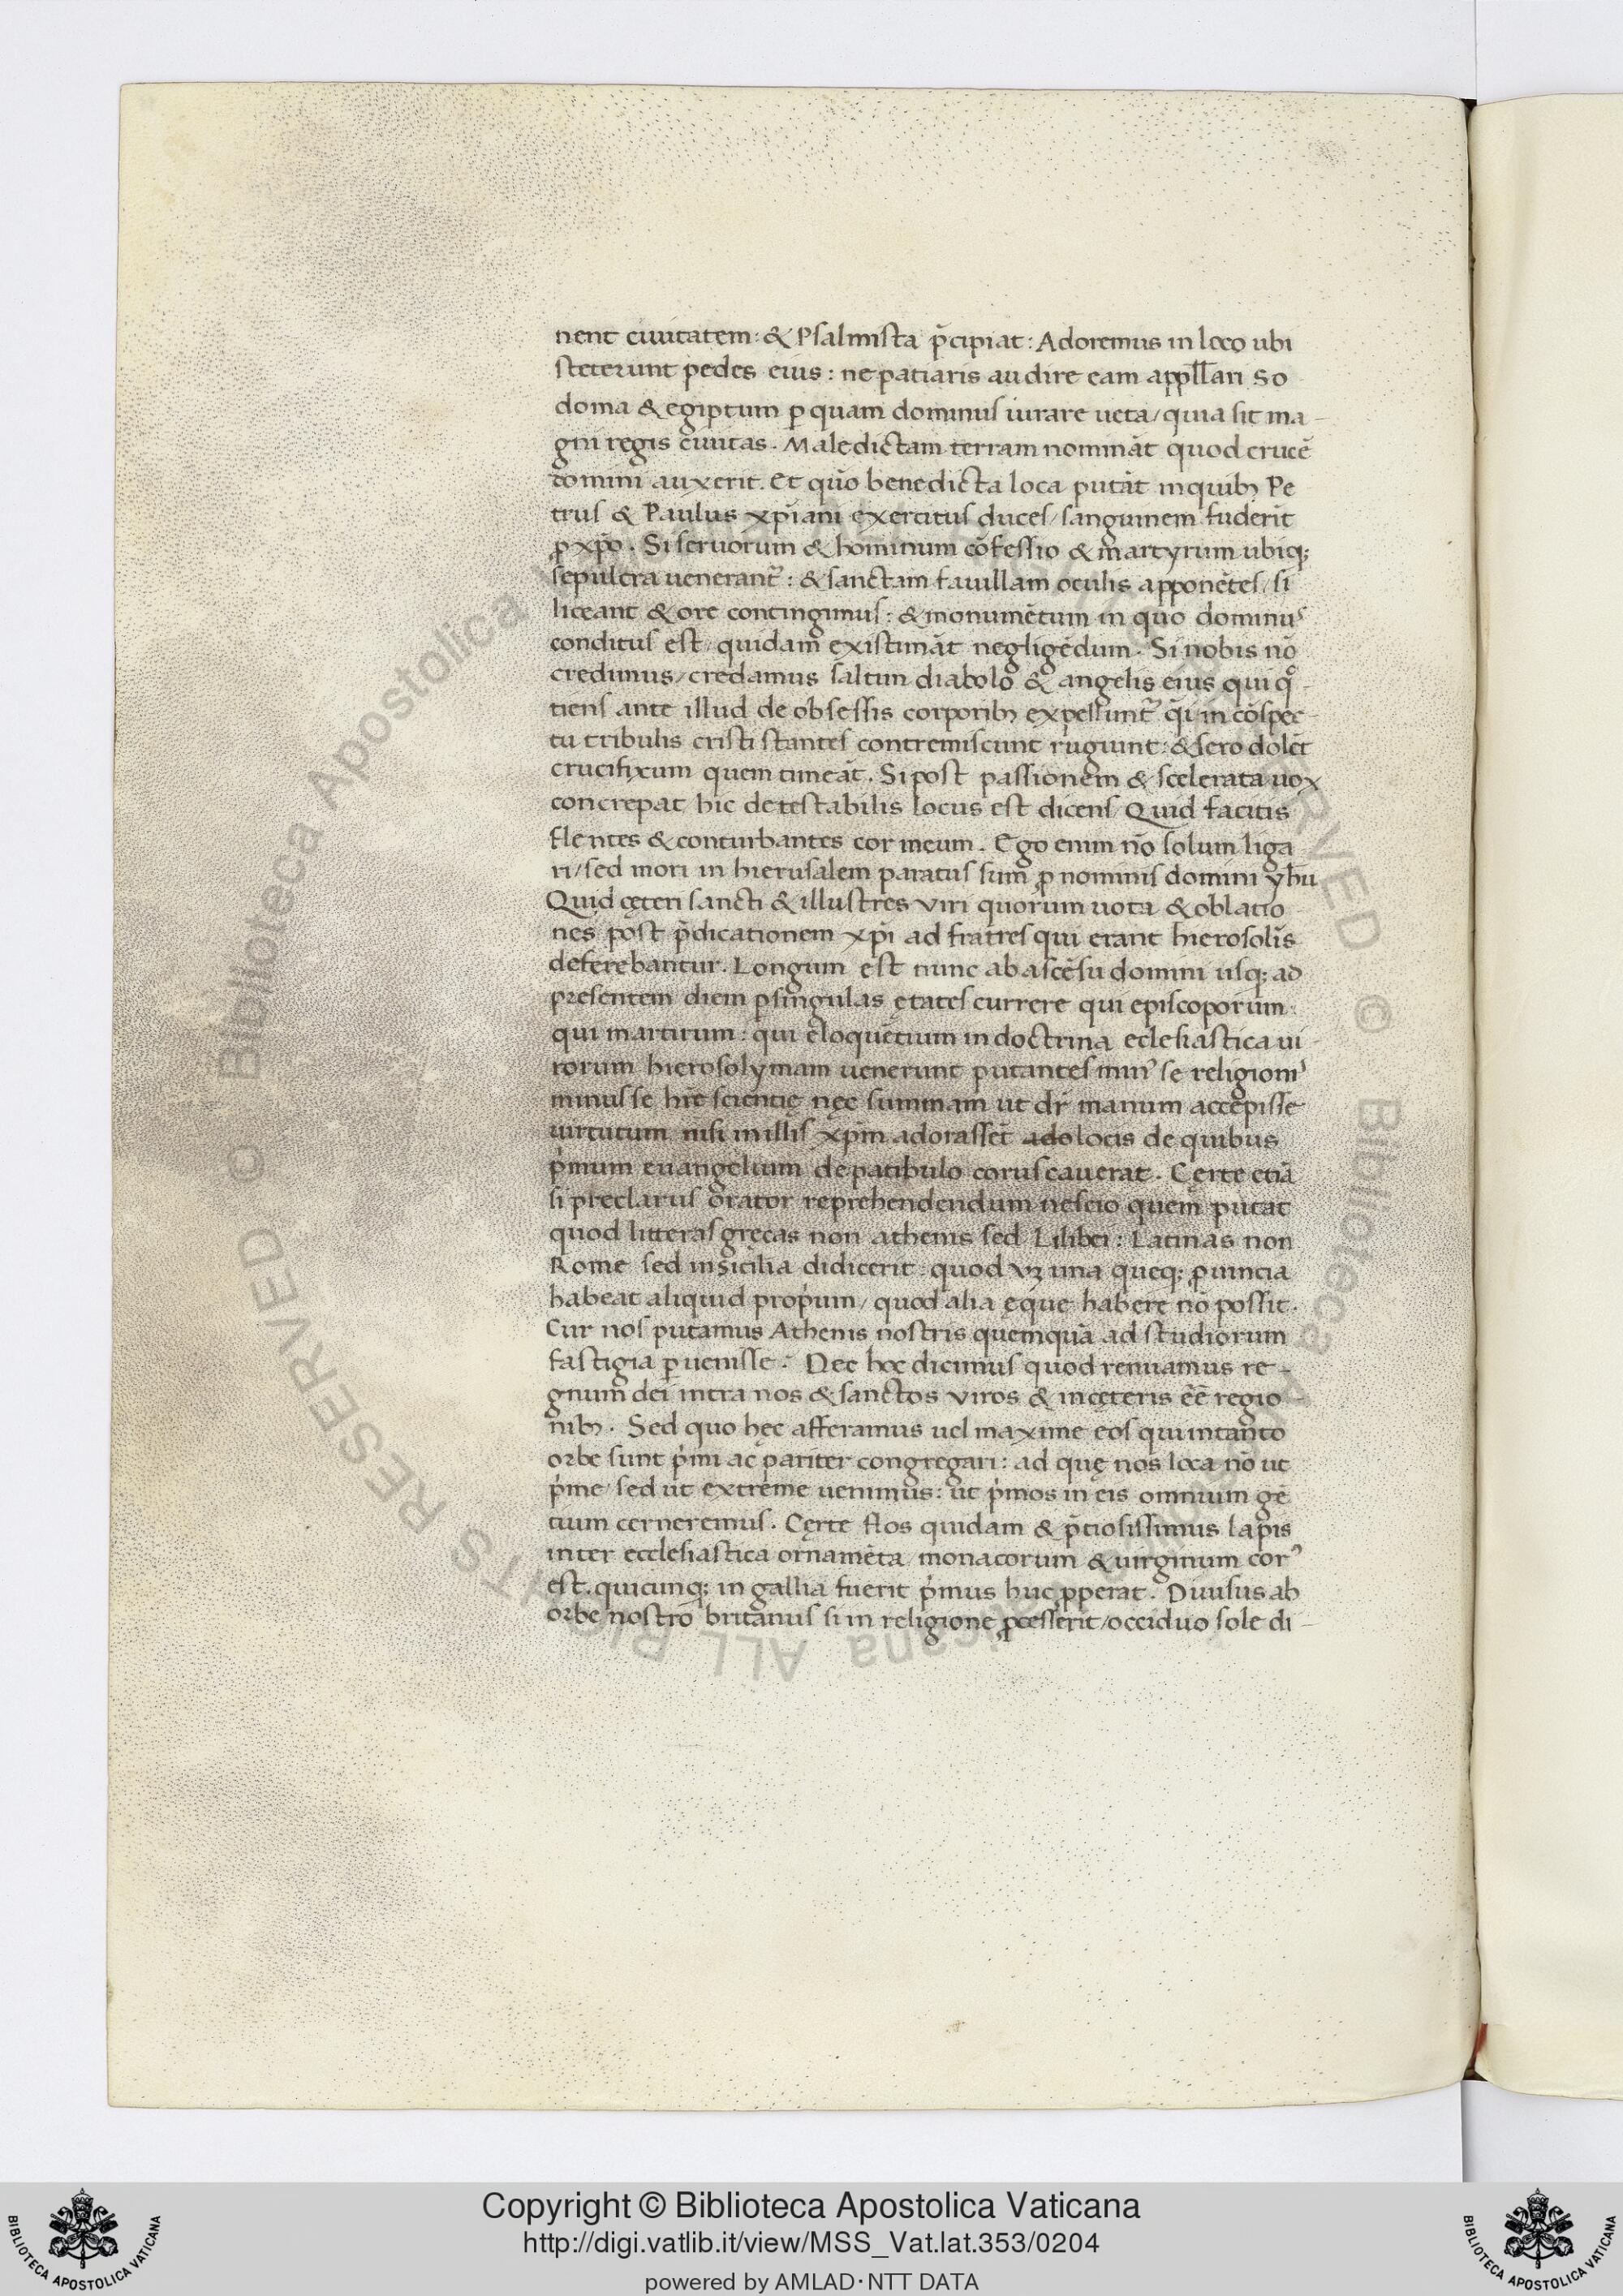 nent ciuitatem: & Psalmista p̄cipiat: Adoremus in loco ubi
steterunt pedes eius: ne patiaris audire eam appl̄lari So
doma & egiptum ꝑ quam dominus iurare ueta/ quia sit ma-
gni regis ciuitas. Maledictam terram nomināt quod crucē
domini auxerit. Et quō benedicta loca putāt in quibꝫ Pe
trus & Paulus xp̄iani exercitus duces/ sanguinem fuderīt
ꝓ xp̄o. Si seruorum & hominum cōfessio & martyrum ubiq;
sepulcra uenerant᷑: & sanctam fauillam oculis apponētes/ si
liceant & ore contingimus: & monumētum in quo dominus
conditus est/ quidam existimāt negligēdum. Si nobis nō
credimus/ credamus saltim diabolo & angelis eius qui qͦ-
tiens ante illud de obsessis corporibꝫ expellunt᷑ q̄i in cōspec-
tu tribulis cristi stantes contremiscunt rugiunt: & sero dolēt
crucifixum quem timeāt. Si post passionem & scelerata uox
concrepat hic detestabilis locus est dicens/ Quid facitis
flentes & conturbantes cor meum. Ego enim nō solum liga
ri/ sed mori in hierusalem paratus sum ꝓ nominis domini yh̄u
Quid cęteri sancti & illustres viri quorum uota & oblatio
nes post p̄dicationem xp̄i ad fratres qui erant hierosolīs
deferebantur. Longum est nunc ab ascēsu domini usq; ad
presentem diem ꝑ singulas ętates currere qui episcoporum
qui martirum: qui eloquētium in doctrina eclesiastica ui-
rorum hierosolymam uenerunt putantes min᾽ se religioni᾽
minus se hr̄e scientię nęc summam ut dr̄ manum accepisse
uirtutum nisi in illis xp̄m adorassēt ado locis de quibus
pⁱmum euangelium de patibulo coruscauerat. Cęrte etiā
si preclarus orator reprehendendum nescio quem putat
quod litteras gręcas non athenis sed Lilibei: Latinas non
Rome sed in sicilia didicerit: quod vꝫ una queq; ꝓuincia
habeat aliquid propⁱum/ quod alia ęque habere nō possit.
Cur nos putamus Athenis nostris quemquā ad studiorum
fastigia ꝑuenisse. Nec hoc dicimus quod renuamus re-
gnum dei intra nos & sanctos viros & in cęteris eē̄ regio-
nibꝫ. Sed quo hęc afferamus uel maxime eos qui in tanto
orbe sunt pⁱmi ac pariter congregari: ad quę nos loca nō ut
pⁱme/ sed ut extreme uenimus: ut pⁱmos in eis omnium gē
tium cerneremus. Cęrte flos quidam & p̄tiosissimus lapis
inter ecclesiastica ornamēta/ monacorum & uirginum cor᾽
est. quicunq; in gallia fuerit pⁱmus huc ꝓperat. Diuisus ab
orbe nostro britanus si in religione ꝓcesserit/ occiduo sole di-
Copyright © Biblioteca Apostolica Vaticana
http://digi.vatlib.it/view/MSS_Vat.lat.353/0204
powered by AMLAD·NTT DATA
BIBLIOTECA APOSTOLICA VATICANA
BIBLIOTECA APOSTOLICA VATICANA